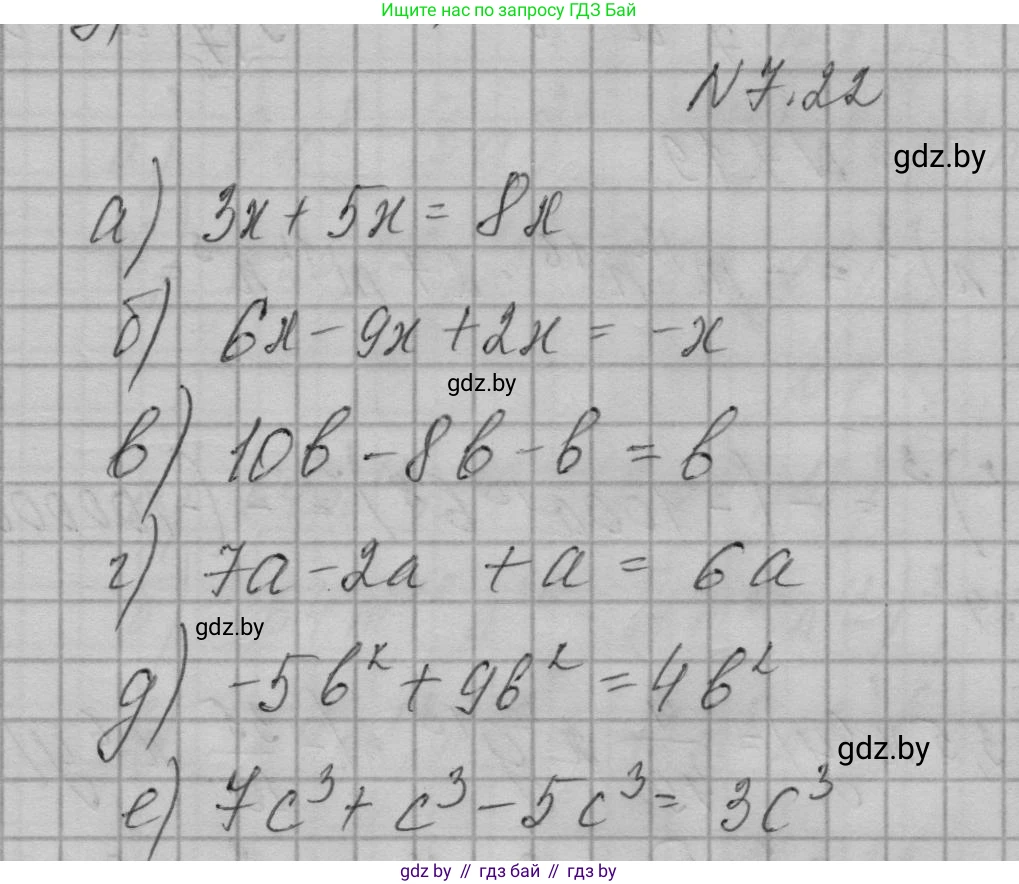 Ищите нас по запросу ГДЗ Бай
N 7.22
gdz.by
а) 3x + 5x = 8x
б) 6x - 9x + 2x = -x
gdz.by
в) 10b - 8b - b = b
г) 7a - 2a + a = 6a
gdz.by
д) -5b² + 9b² = 4b²
gdz.by
е) 7c³ + c³ - 5c³ = 3c³
gdz by // гдз бай // гдз by